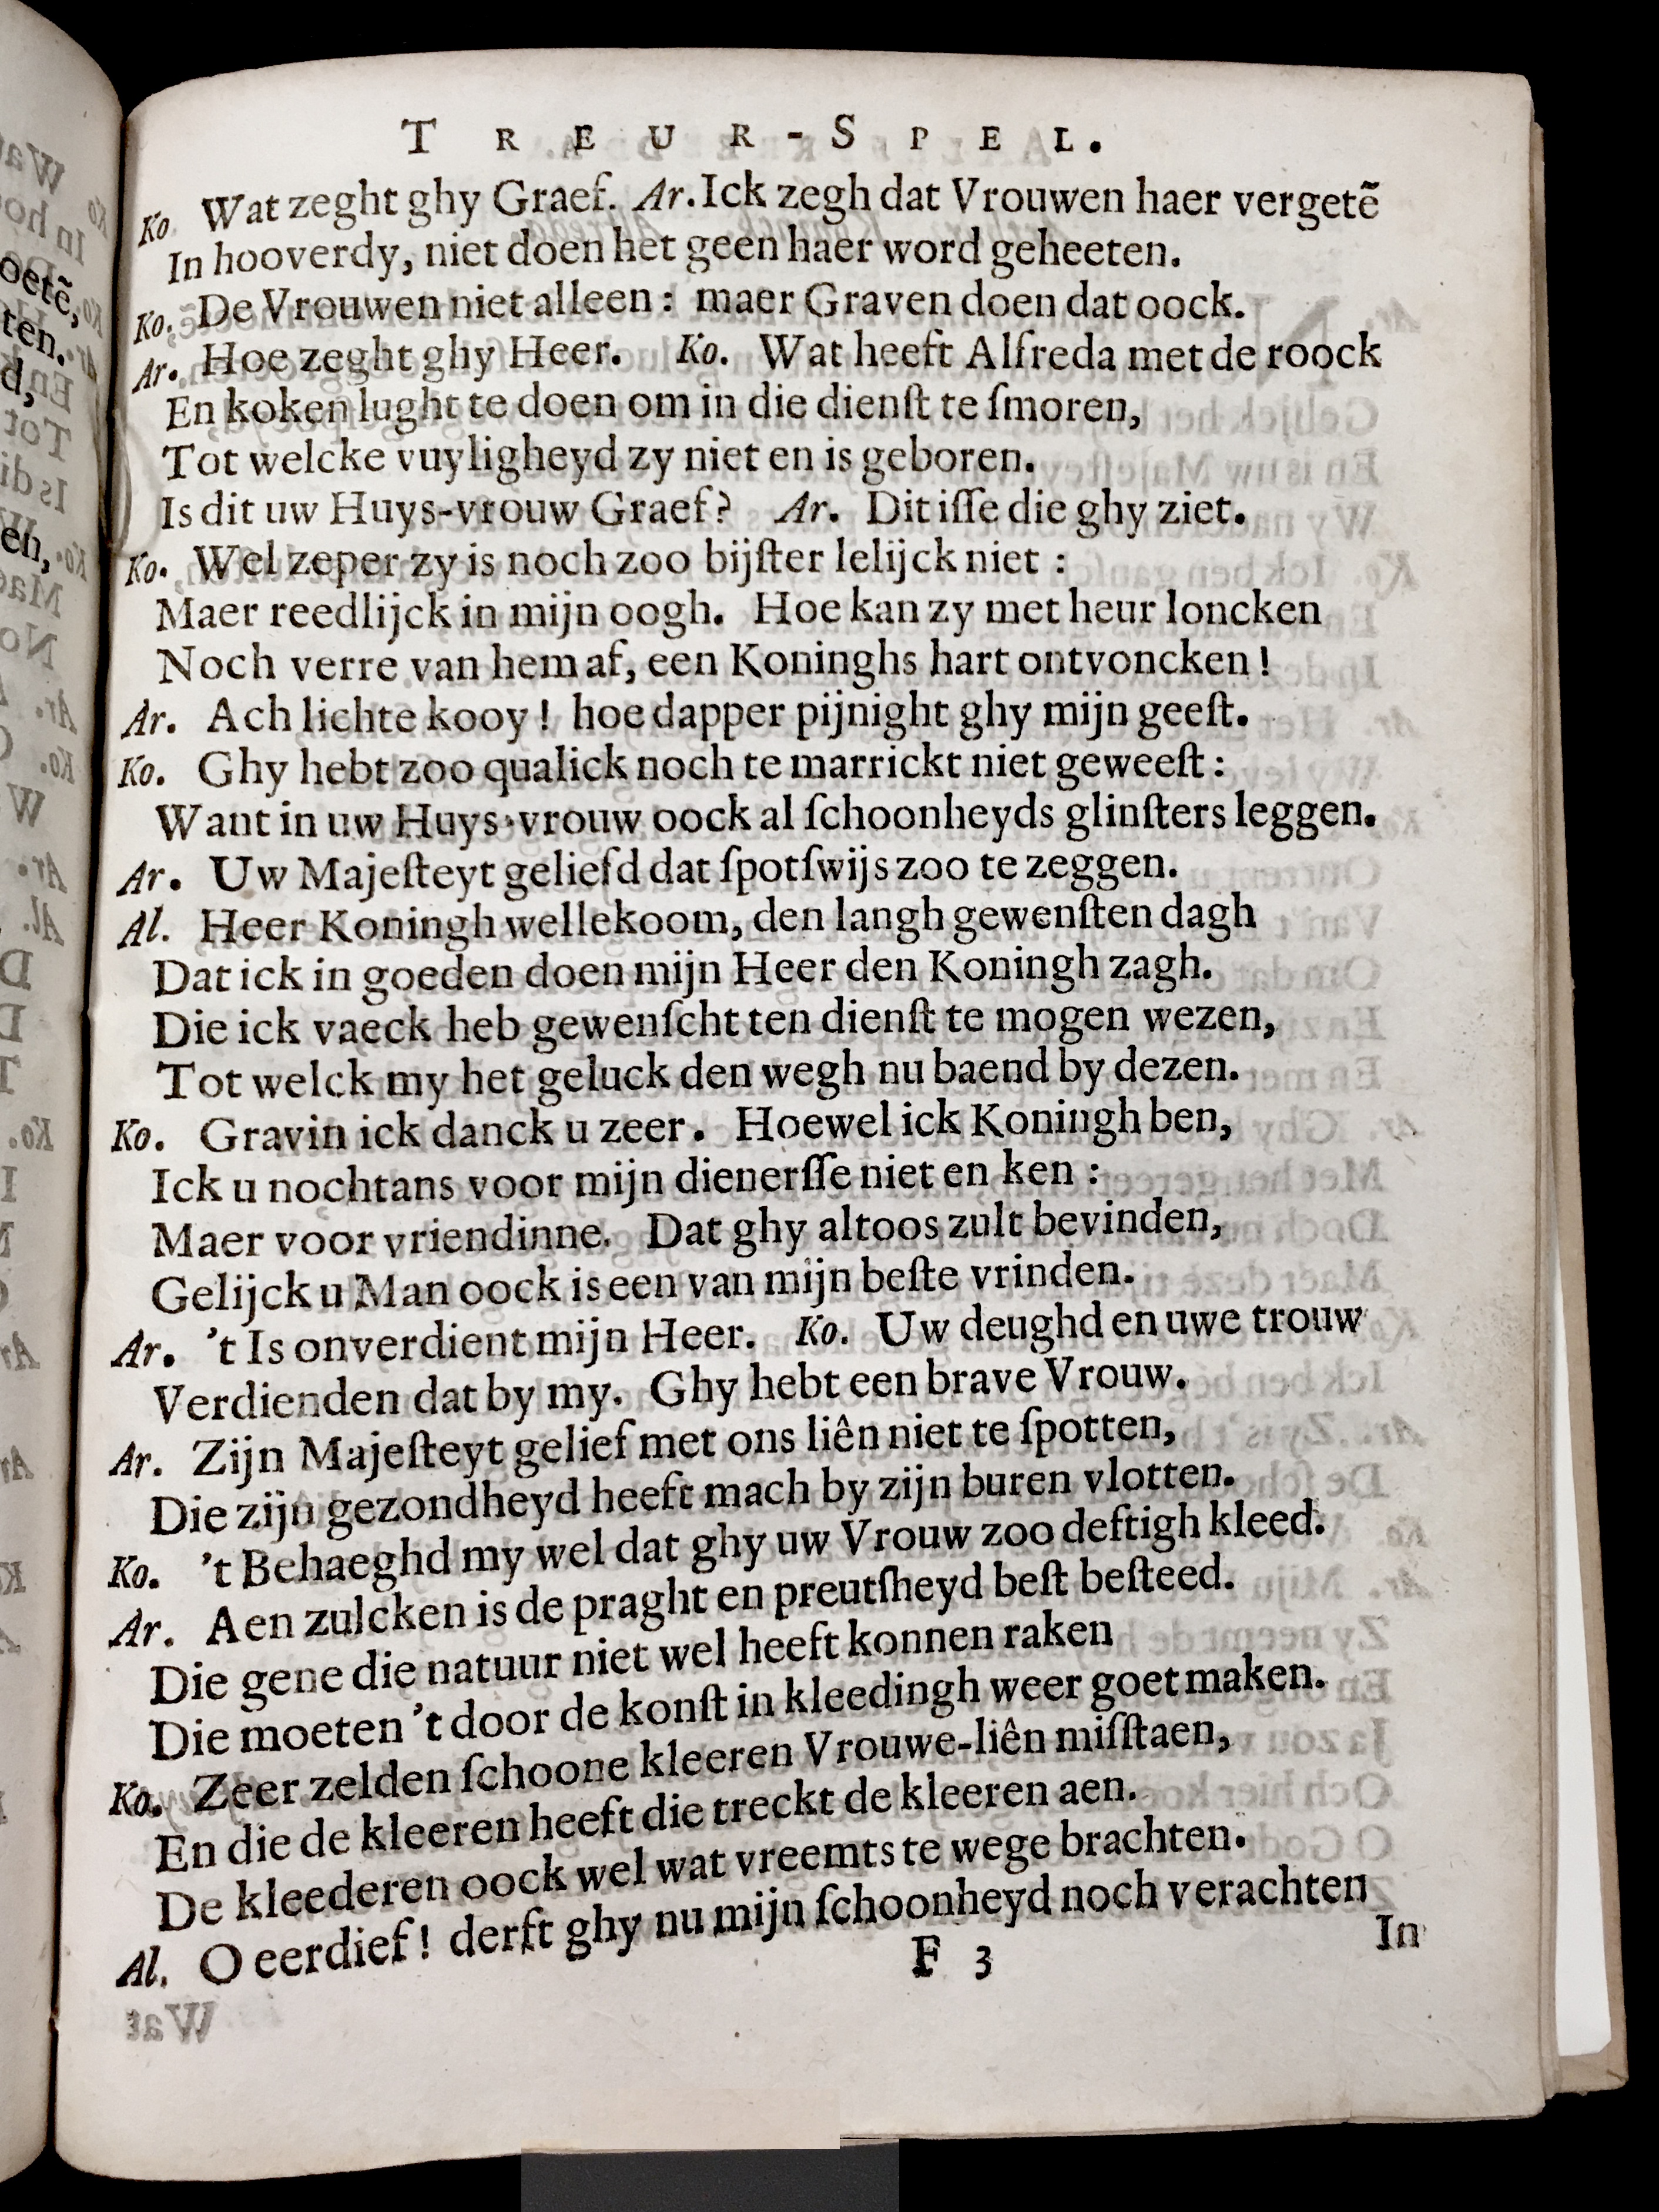 TREUR-SPEL.
Ko. Wat zeght ghy Graef. Ar. Ick zegh dat Vrouwen haer vergetẽ
In hooverdy, niet doen het geen haer word geheeten.
Ko. De Vrouwen niet alleen : maer Graven doen dat oock.
Ar. Hoe zeght ghy Heer. Ko. Wat heeft Alfreda met de roock
En koken lught te doen om in die dienſt te ſmoren,
Tot welcke vuyligheyd zy niet en is geboren.
Is dit uw Huys-vrouw Graef? Ar. Dit iſſe die ghy ziet.
Ko. Wel zeper zy is noch zoo bijſter lelijck niet :
Maer reedlijck in mijn oogh. Hoe kan zy met heur loncken
Noch verre van hem af, een Koninghs hart ontvoncken !
Ar. Ach lichte kooy ! hoe dapper pijnight ghy mijn geeſt.
Ko. Ghy hebt zoo qualick noch te marrickt niet geweeſt :
Want in uw Huys-vrouw oock al ſchoonheyds glinſters leggen.
Ar. Uw Majeſteyt geliefd dat ſpotſwijs zoo te zeggen.
Al. Heer Koningh wellekoom, den langh gewenſten dagh
Dat ick in goeden doen mijn Heer den Koningh zagh.
Die ick vaeck heb gewenſcht ten dienſt te mogen wezen,
Tot welck my het geluck den wegh nu baend by dezen.
Ko. Gravin ick danck u zeer. Hoewel ick Koningh ben,
Ick u nochtans voor mijn dienerſſe niet en ken :
Maer voor vriendinne. Dat ghy altoos zult bevinden,
Gelijck u Man oock is een van mijn beſte vrinden.
Ar. 't Is onverdient mijn Heer. Ko. Uw deughd en uwe trouw
Verdienden dat by my. Ghy hebt een brave Vrouw.
Ar. Zijn Majeſteyt gelief met ons liên niet te ſpotten,
Die zijn gezondheyd heeft mach by zijn buren vlotten.
Ko. 't Behaeghd my wel dat ghy uw Vrouw zoo deftigh kleed.
Ar. Aen zulcken is de praght en preutſheyd beſt beſteed.
Die gene die natuur niet wel heeft konnen raken
Die moeten 't door de konſt in kleedingh weer goet maken.
Ko. Zeer zelden ſchoone kleeren Vrouwe-liên miſſtaen,
En die de kleeren heeft die treckt de kleeren aen.
De kleederen oock wel wat vreemts te wege brachten.
Al. O eerdief ! derft ghy nu mijn ſchoonheyd noch verachten
F 3
In